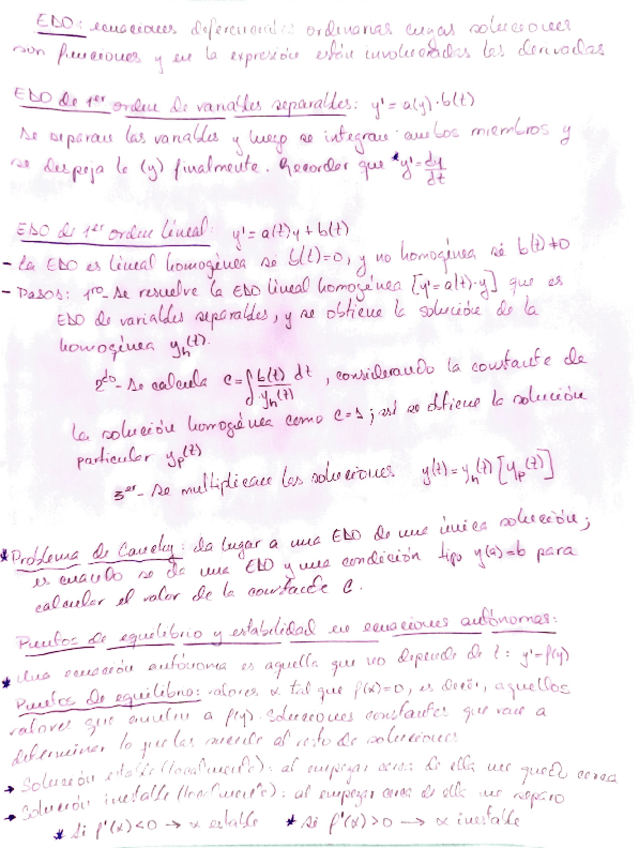 EDO: ecuaciones diferenciales ordinarias cuyas soluciones
son funciones y en la expresión están involucradas las derivadas
EDO de 1er orden de variables separables: y' = a(y)·b(t)
Se separan las variables y luego se integran ambos miembros y
se despeja la (y) finalmente. Recordar que *y'=dy/dt
EDO de 1er orden lineal: y' = a(t)y + b(t)
- La EDO es lineal homogénea si b(t)=0, y no homogénea si b(t)≠0
- Pasos: 1ro- Se resuelve la EDO lineal homogénea [y'=a(t)·y] que es
EDO de variables separables, y se obtiene la solución de la
homogénea yh(t).
2do- Se calcula c=∫b(t)/yh(t) dt, considerando la constante de
la solución homogénea como c=1; así se obtiene la solución
particular yp(t)
3er- Se multiplican las soluciones y(t)=yh(t)[yp(t)]
*Problema de Cauchy: da lugar a una EDO de una única solución;
es cuando se da una EDO y una condición tipo y(a)=b para
calcular el valor de la constante C.
Puntos de equilibrio y estabilidad en ecuaciones autónomas:
* Una ecuación autónoma es aquella que no depende de t: y'=f(y)
Puntos de equilibrio: valores α tal que f(α)=0, es decir, aquellos
valores que anulan a f(y). Soluciones constantes que van a
determinar lo que les sucede al resto de soluciones
→ Solución estable (localmente): al empezar cerca de ella me quedo cerca
→ Solución inestable (localmente): al empezar cerca de ella me separo
* Si f'(α)<0 → α estable * si f'(α)>0 → α inestable